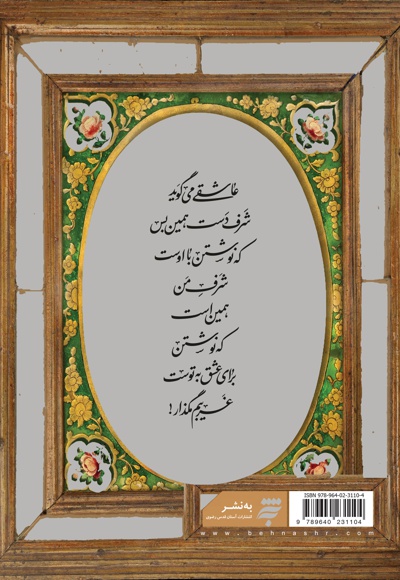 عاشقی می‌گوید
شرفِ دست همین بس
که نوشتن با اوست
شرفِ من
همین است
که نوشتن
برای عشق به توست
غریبم مگذار!
ISBN 978-964-02-3110-4
9 789640 231104
به‌نشر
انتشارات آستان قدس رضوی
www.behnashr.com